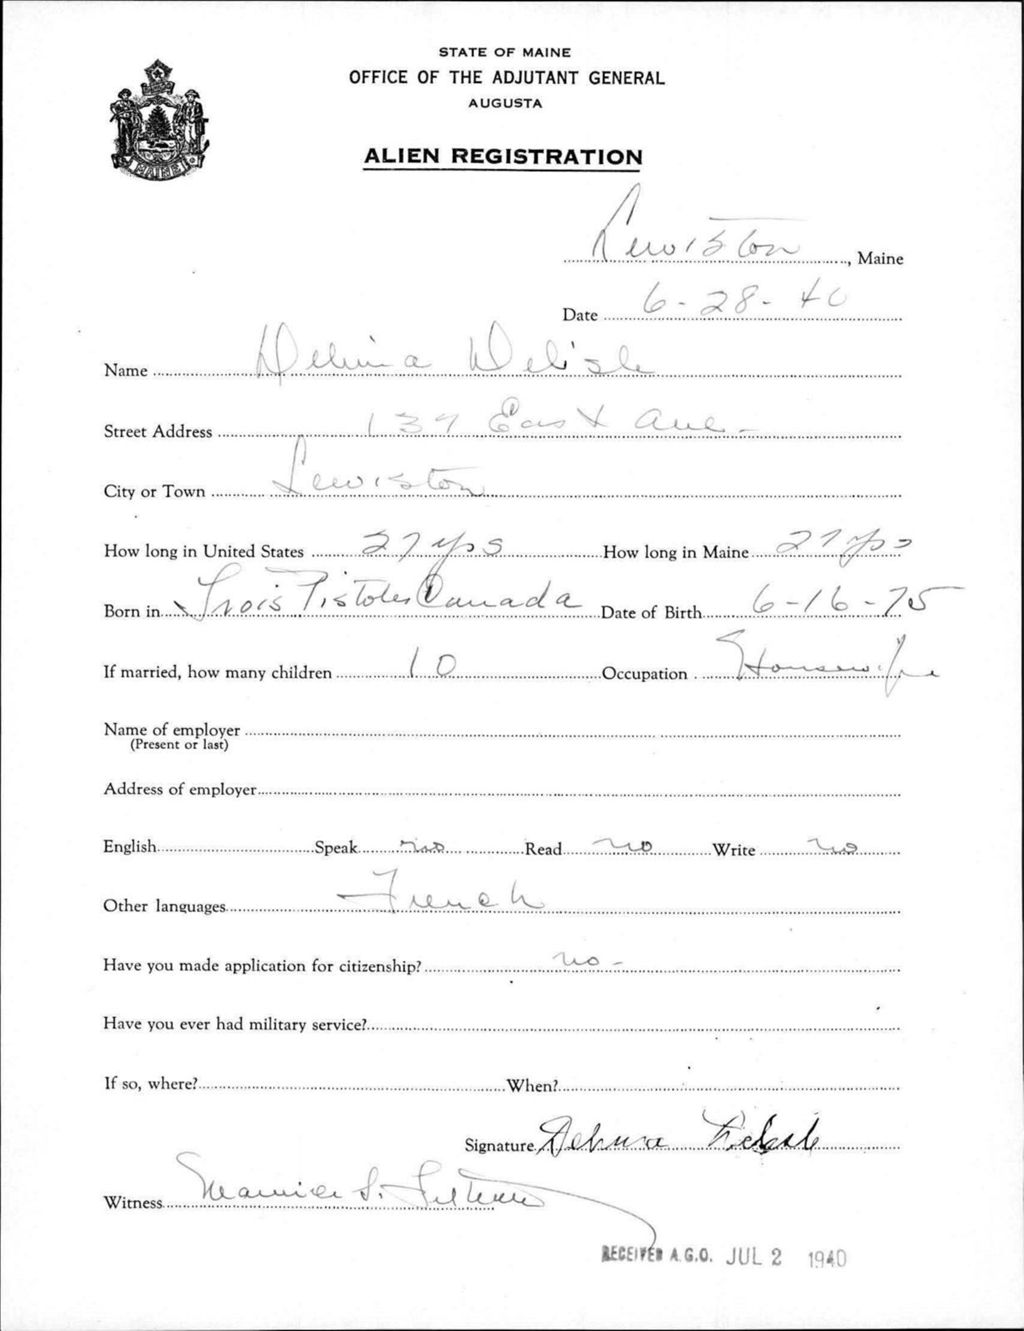 STATE OF MAINE
OFFICE OF THE ADJUTANT GENERAL
AUGUSTA
MAINE
ALIEN REGISTRATION
Lewiston, Maine
Date 6-28-40
Name Delima Delisle
Street Address 139 East Ave-
City or Town Lewiston
How long in United States 27 yrs How long in Maine 27 yrs
Born in Trois Pistoles Canada Date of Birth 6-16-75
If married, how many children 10 Occupation Housewife
Name of employer
(Present or last)
Address of employer
English Speak no Read no Write no
Other languages French
Have you made application for citizenship? no-
Have you ever had military service?
If so, where? When?
Signature Delima
Witness Maurice S.
RECEIVED A.G.O. JUL 2 1940